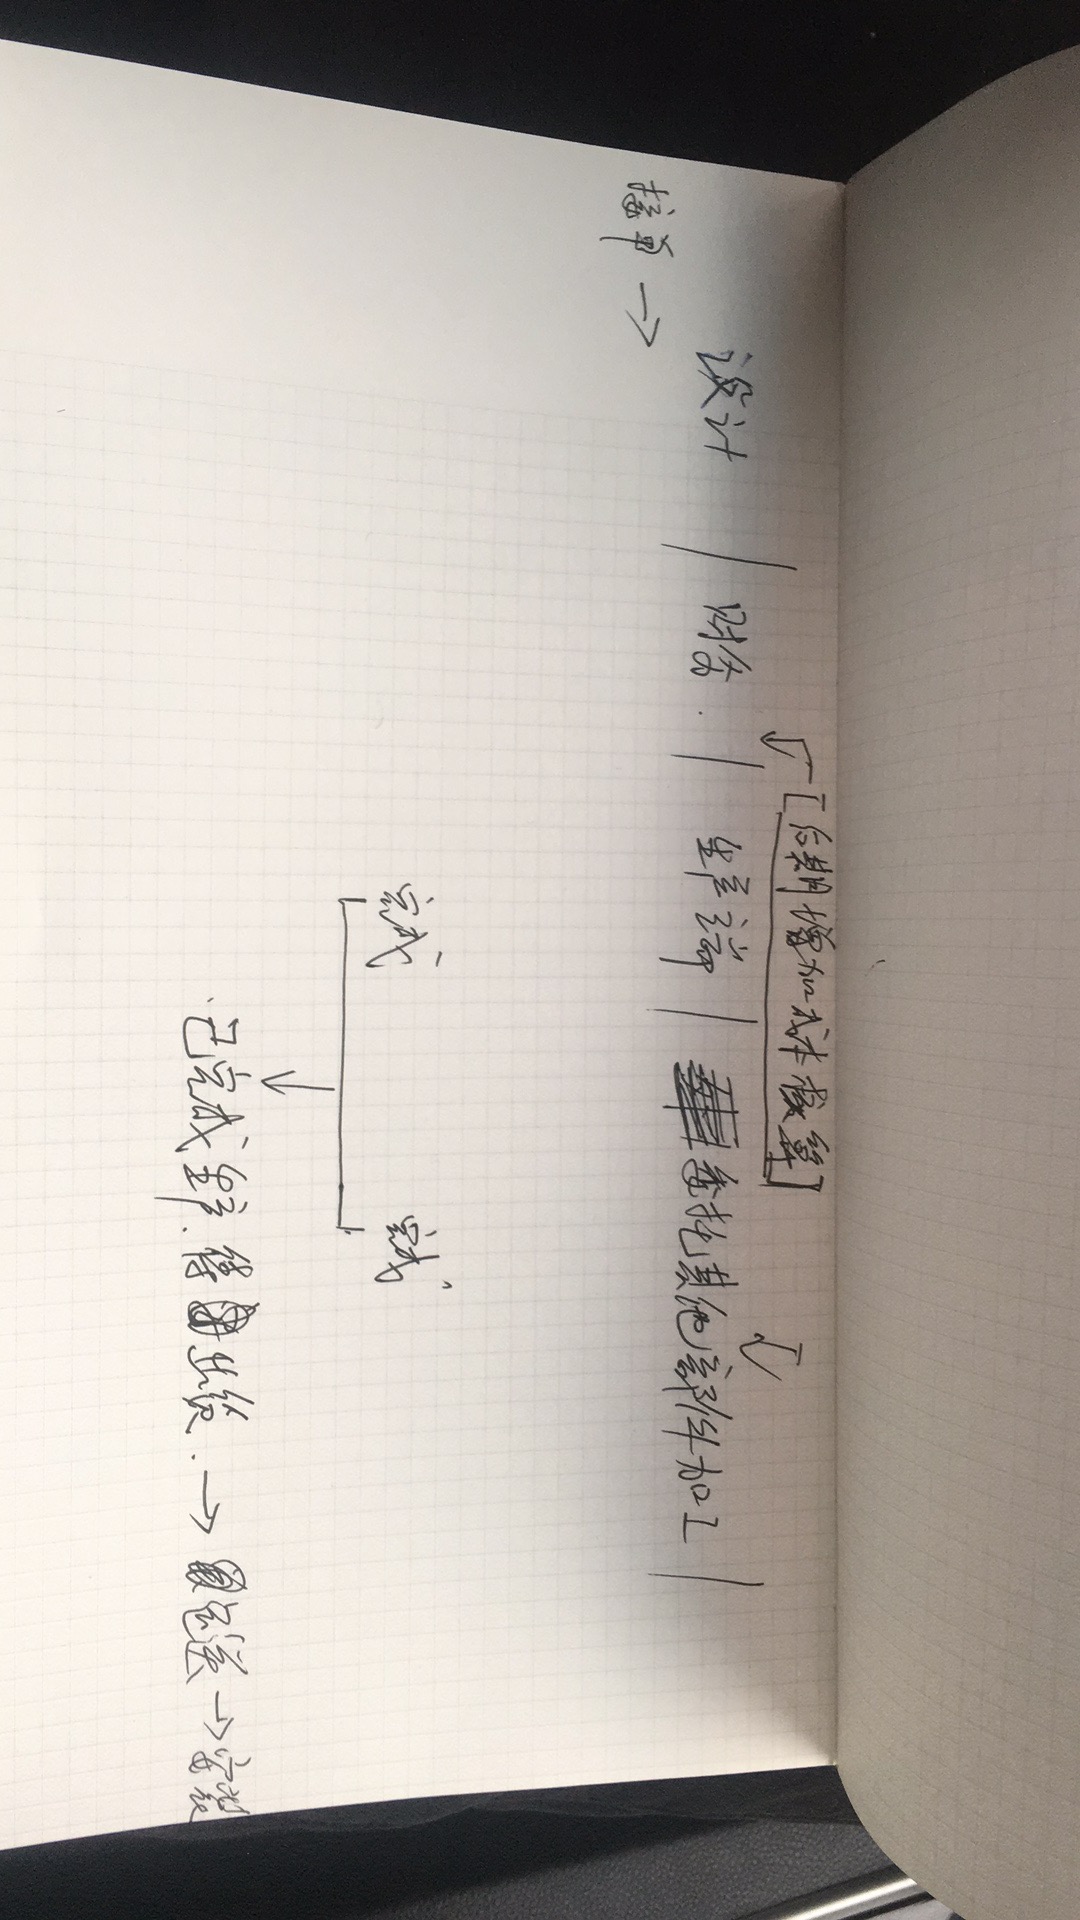 [后期增加成本核算]
设计 | 财务. | 生产端 | 委托其他部件加工 |
接单 →
完成 完成
已完成生产.待出货. → 包送 → 安装